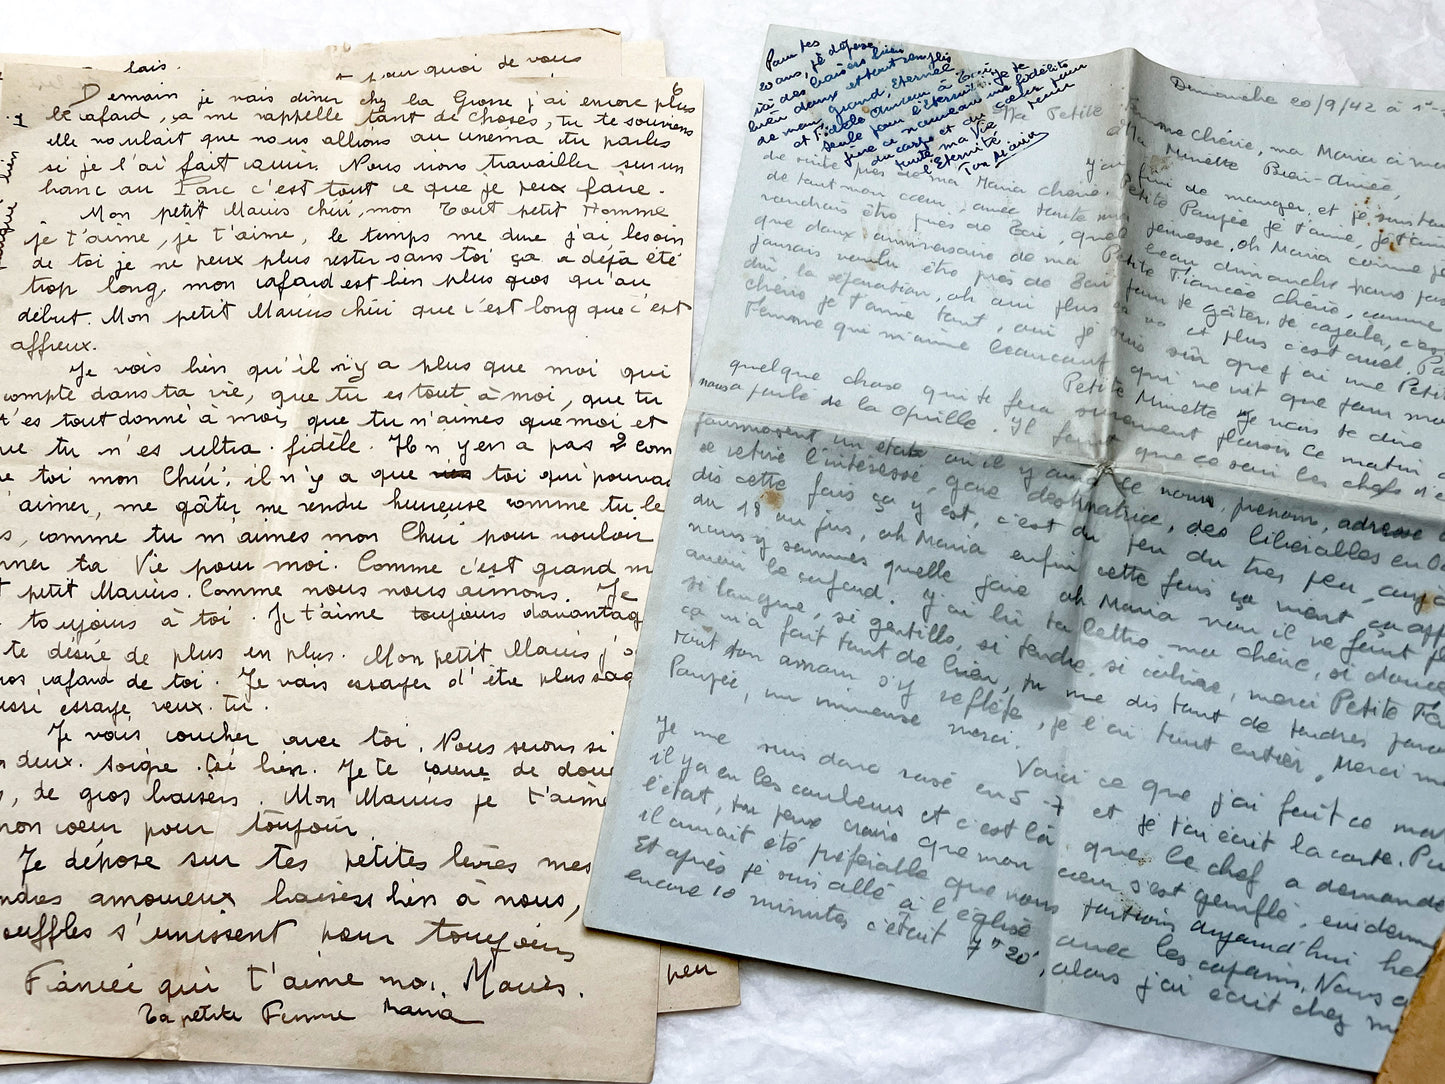 lais.
pourquoi de vous
Demain je vais dîner chez la Grosse j'ai encore plus
le cafard, ça me rappelle tant de choses, tu te souviens
elle voulait que nous allions au cinéma tu parles
si je l'ai fait courir. Nous irons travailler sur un
banc au Parc c'est tout ce que je peux faire.
Mon petit Marius chéri, mon Tout petit Homme
je t'aime, je t'aime, le temps me dure j'ai besoin
de toi je ne peux plus rester sans toi ça a déjà été
trop long, mon cafard est bien plus gros qu'au
début. Mon petit Marius chéri que c'est long que c'est
affreux.
Je vois bien qu'il n'y a plus que moi qui
compte dans ta vie, que tu es tout à moi, que tu
t'es tout donné à moi, que tu n'aimes que moi et
que tu n'es ultra-fidèle. Il n'y en a pas 2 com
toi mon Chéri, il n'y a que toi qui pourra
aimer, me gâter, me rendre heureuse comme tu le
comme tu m'aimes mon Chéri pour vouloir
ta Vie pour moi. Comme c'est grand m
petit Marius. Comme nous nous aimons. Je
toujours à toi. Je t'aime toujours davantag
te désire de plus en plus. Mon petit Marius j'
cafard de toi. Je vais essayer d'être plus sag
essayé veux-tu.
Je vais coucher avec toi. Nous serons si
deux. Soigne-toi bien. Je te de dou
de gros baisers. Mon Marius je t'aime
mon coeur pour toujour
Je dépose sur tes petites lèvres mes
amoureux baisers bien à nous,
souffles s'unissent pour toujours
Fiancée qui t'aime moi, Marius.
Ta petite Femme Maria
peu
Dimanche 20/9/42 à 1
Pour tes
20 ans, je dépose
ici des baisers bien
bien doux et tout remplis
de mon grand, Eternel
et Fidèle Amour à Toi
seule pour l'éternité. Je te
jure à nouveau ma fidélité
du corps et du coeur pour
toute ma Vie
l'Eternité
Ton Marius
Ma Petite Femme Chérie, ma Maria à moi
Ma Minette Bien-Aimée,
J'ai fini de manger et je suis
de suite près de ma Maria chérie, Petite Poupée je t'aime, je t'aime
de tout mon coeur, avec toute ma jeunesse, oh Maria comme je
voudrais être près de Toi quel beau dimanche
que doux anniversaire de ma Petite Fiancée chérie, comme
jamais voulu être près de Toi pour te gâter, te cajoler, c'est
dur, la séparation, oh oui plus ça va et plus c'est cruel.
chérie je t'aime tant, oui je suis sûr que j'ai une Petite
Femme qui m'aime beaucoup qui ne vit que pour moi
Petite Minette je vais te dire
quelque chose qui te fera sûrement plaisir ce matin
nous a parlé de la Quille. Il faut que ce soir les chefs
fournissent un état où il y aura le nom, prénom, adresse
se retire l'intéressé, gare destinatrice, des libérables en
dis cette fois ça y est, c'est du feu du très peu, aujo
du 18 au jus, oh Maria enfin cette fois ça vient ça
nous y sommes quelle joie oh Maria non il ne faut
avoir le cafard. J'ai lu ta lettre ma chérie, si douce
si longue, si gentille, si tendre, si câline, merci Petite
ça m'a fait tant de bien, tu me dis tant de tendres
tout ton amour s'y reflète, je l'ai tout entier, Merci
Poupée, un immense merci.
Voici ce que j'ai fait ce mat
Je me suis donc rasé en 5-7 et je t'ai écrit la carte.
il y a eu les couleurs et c'est là que le chef a demandé
l'état, tu peux croire que mon coeur s'est gonflé,
il aurait été préférable que nous partions aujourd'hui
Et après je suis allé à l'église avec les copains. Nous
encore 10 minutes c'était 7h 20, alors j'ai écrit chez